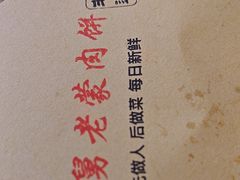 舅老蒙肉饼
先做人 后做菜 每日新鲜